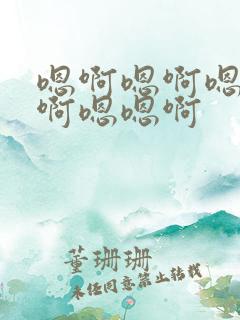 嗯啊嗯啊嗯
啊嗯嗯啊
董珊珊
未经同意禁止转载